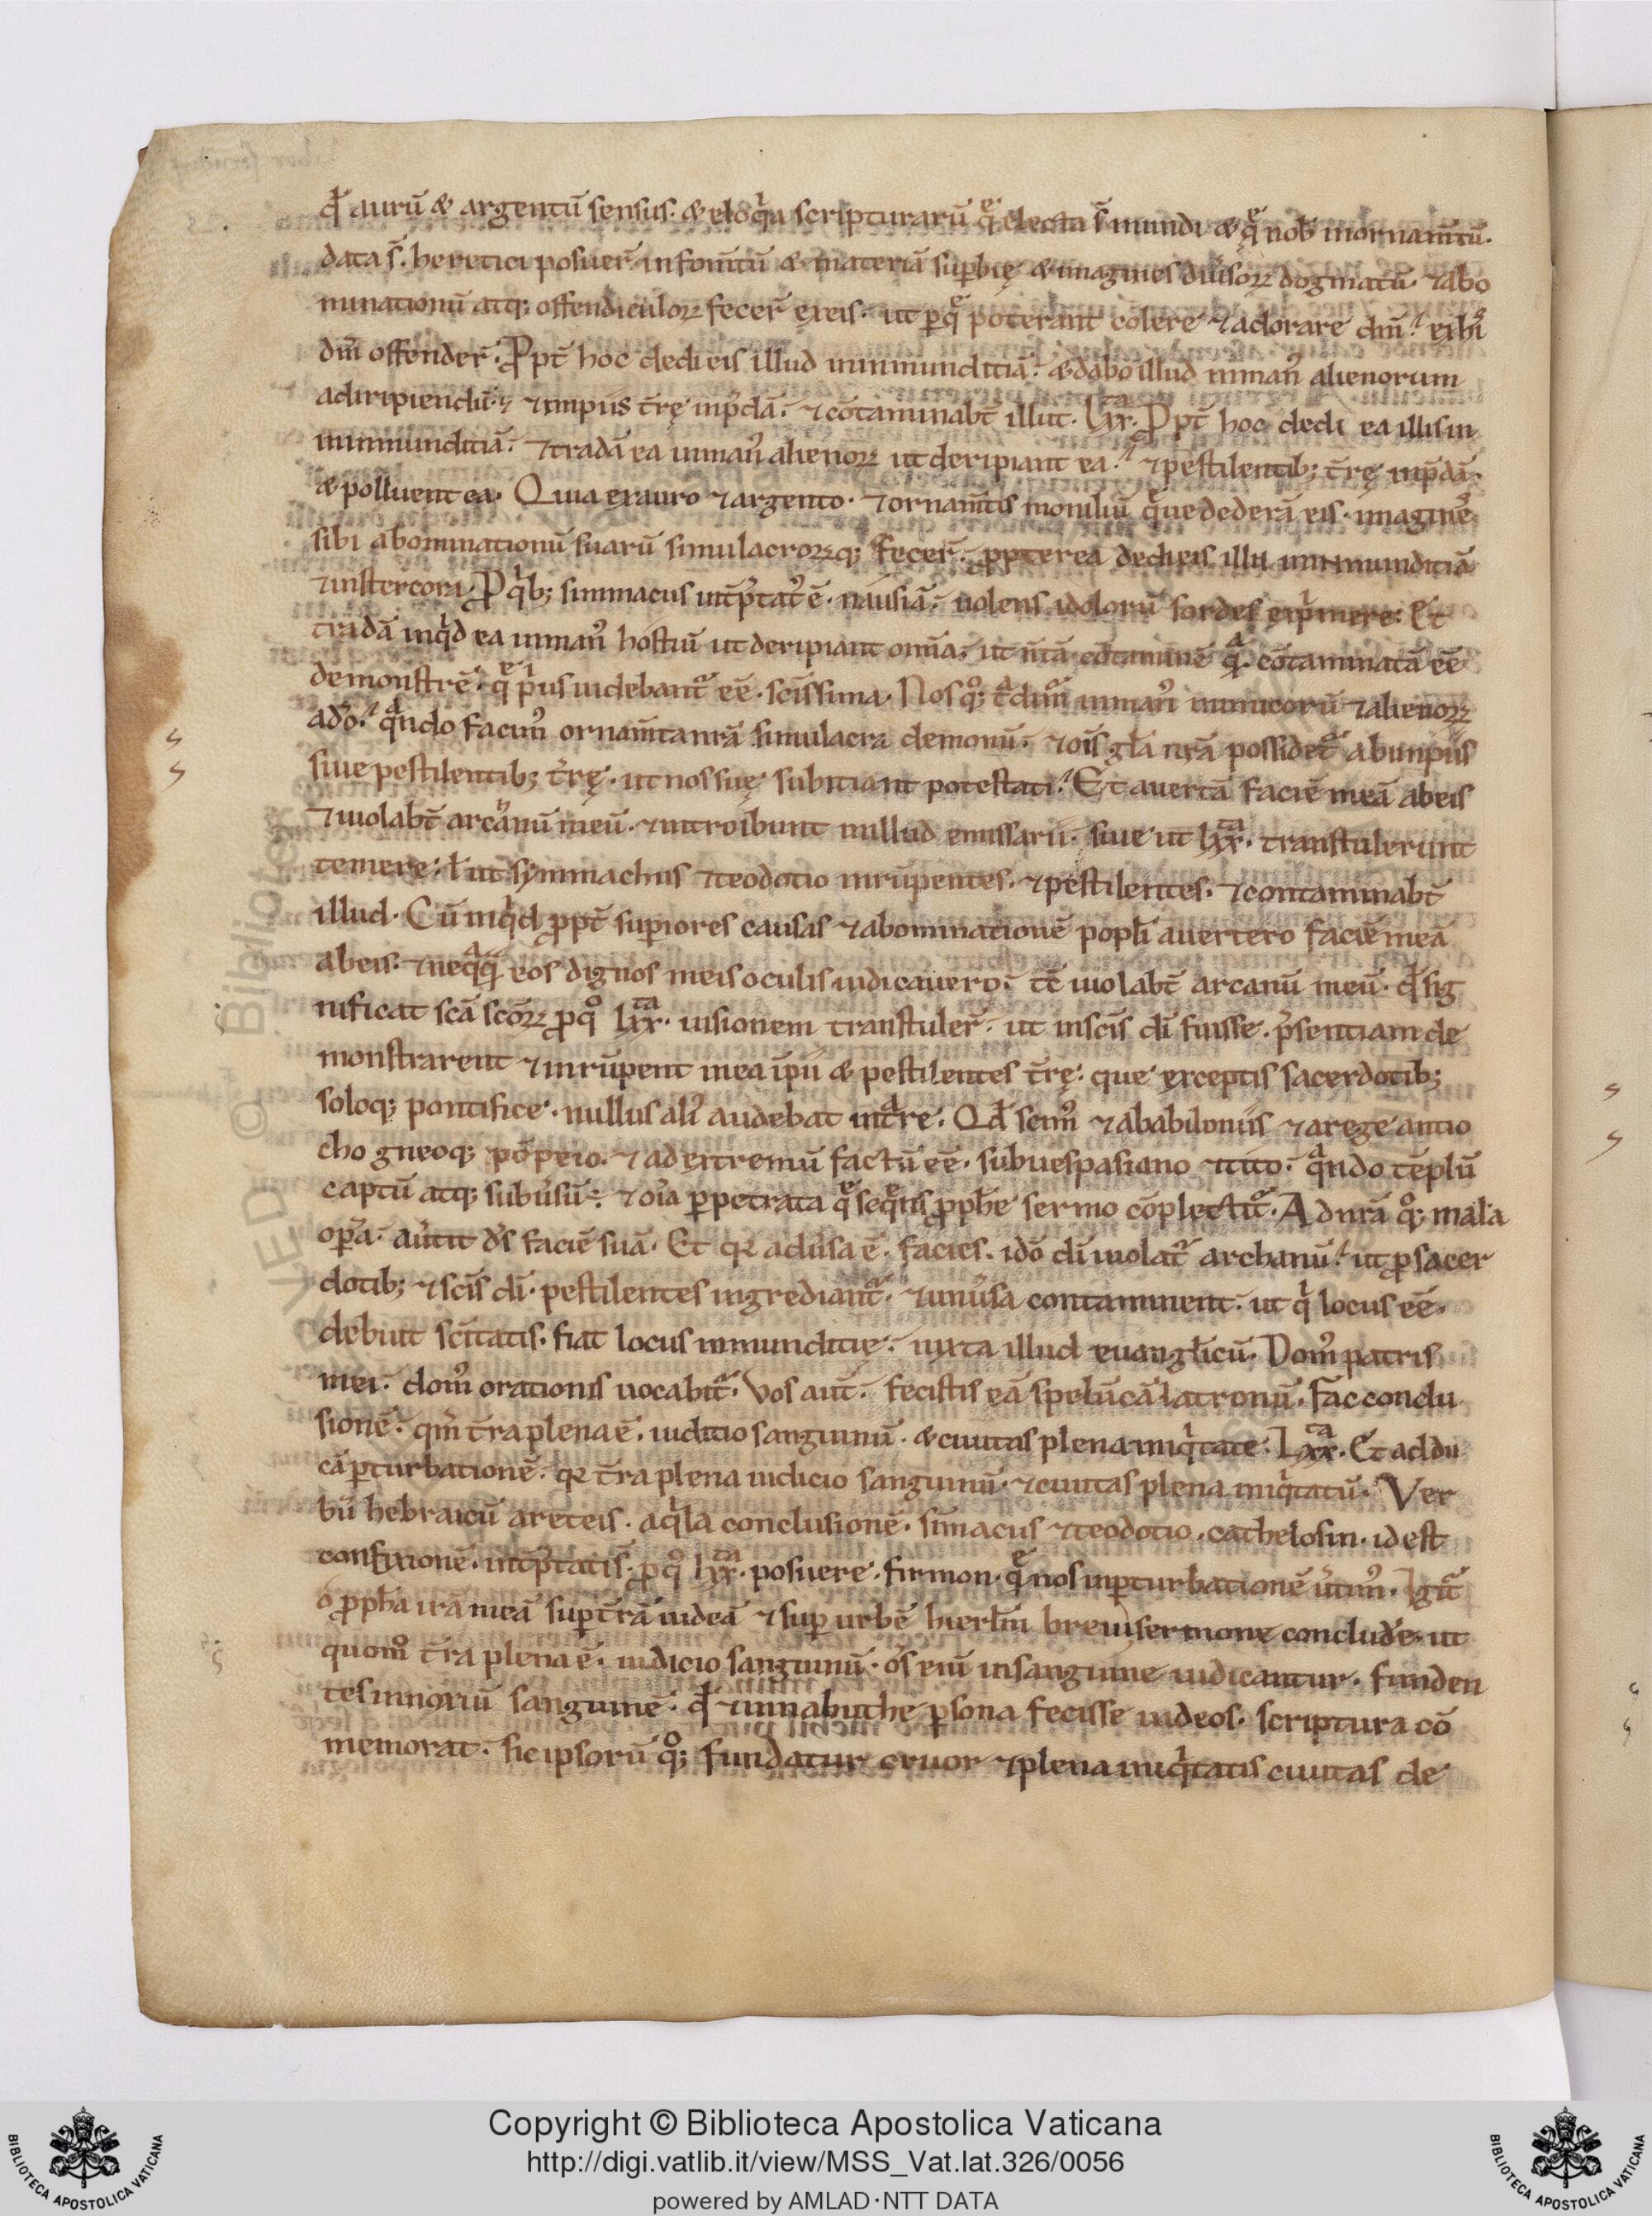 qđ aurū & argentū sensus. & eloqia scripturarū q̄ electa s̄ mundi & q̄ nob̄ inornam̄tū.
data s̄. heretici posuer̄ infom̄tū & materiā sup̄bię & imagines diūsoꝝ dogmatū. ⁊abo
minationū atq; offendiculoꝝ fecer̄ exeis. ut p̄q̄ poterant colere ⁊adorare dm̄. exhi
dm̄ offender̄. Ppt̄ hoc dedi eis illud inmunditiā. & dabo illud inman᷒ alienorum
adiripiendū. ⁊impiis t̄rę inp̄dā. ⁊cōtaminabt̄ illut. Lxx. Ppt̄ hoc dedi ea illis in
inmunditiā. ⁊tradā ea inman᷒ alienoꝝ ut deripiant ea. ⁊pestilentib; t̄rę inp̄dā.
& polluent ea. Quia exauro ⁊argento. ⁊ornam̄tis moniliū que dederā eis. imagine᷒
sibi abominationū suarū simulacroꝝq; fecer̄. ppterea dedi eis illū inmunditiā
⁊instercora. P qib; simmacus int̄p̄tat᷒ ē. nausiā. uolens idolorū sordes exp̄mere. Et
tradā inqid ea inman᷒ hostiū ut deripiant omīa. ut n̄ tā cōtaminē qā. cōtaminatā eē
demonstrē. q̄ p̄us uidebant̄ eē. scīssima. Nos qo; t̄dim᷒ inman᷒ inimicorū ⁊alienoꝝ
ado. qāndo facim᷒ ornam̄ta nrā simulacra demonū. ⁊oīs gl̄a nrā possidet̄ abimpiis
siue pestilentib; t̄rę. ut nos suę subitiant potestati. Et auertā faciē meā abeis
⁊uiolabt̄ arcanū meū. ⁊introibunt inillud emissarii. siue ut lxx. transtulerunt
temere. l̄ ut symmachus ⁊teodotio inrūpentes. ⁊pestilentes. ⁊contaminabt̄
illud. Cū inqid ppt̄ sup̄iores causas ⁊abominationē popl̄i auertero faciē meā
abeis. ⁊neqāqā eos dignos meis oculis iudicauero. t̄c uiolabt̄ arcanū meū. qđ sig
nificat scā scōꝝ p qo lxx. uisionem transtuler̄. ut inscīs dī fuisse. p̄sentiam de
monstrarent ⁊inrūpent inea ipii & pestilentes t̄rę. que exceptis sacerdotib;
soloq; pontifice. nullus ali᷒ audebat int̄re. Qđ scim᷒ ⁊ababiloniis ⁊arege antio
cho gneoq; pōpeio. ⁊ad extremū factū eē. subuespasiano ⁊tito. qāndo tēplū
captū atq; subūsū. ⁊ oīa p̄petrata q̄ seq̄ns pph̄e sermo cōplectit̄. Ad nrā qo; mala
op̄a. aūtit dś faciē suā. Et qꝛ adūsa ē. facies. idō dī uiolat̄ archanū. ut p sacer
dotib; ⁊ scīs dī. pestilentes ingrediant̄. ⁊uniūsa contaminent. ut qi locus eē.
debuit scītatis. fiat locus inmunditię. iuxta illud euangl̄icū. Dom᷒ patris
mei. dom᷒ orationis uocabit̄. Vos aūt. fecistis eā spelūcā latronū. Fac conclu
sionē. qm̄ t̄ra plena ē. iuditio sanguinū. & ciuitas plena iniqitate. Lxx. Et addu
cā p̄turbationē. qꝛ t̄ra plena iudicio sanguinū. ⁊ciuitas plena iniqitatū. Ver
bū hebraicū areteis. aqila conclusionē. simacus ⁊teodotio. cathelosin. id est
confixionē. int̄p̄tatis̄. p qo lxx. posuere. firmon. q̄ nos inp̄turbationē ūtim᷒. Igit̄
ō pph̄a irā meā sup t̄rā iudeā ⁊sup urbē hierl̄m breui sermone conclude. ut
quom᷒ t̄ra plena ē. iudicio sanguinū. o᷒s enī insanguine iudicantur. funden
tes innoxiū sanguinē. qđ ⁊innabuthe p̄sona fecisse iudeos. scriptura cō
memorat. sic ipsorū qo; fundatur cruor ⁊plena iniqitatis ciuitas de
Copyright © Biblioteca Apostolica Vaticana
http://digi.vatlib.it/view/MSS_Vat.lat.326/0056
powered by AMLAD·NTT DATA
BIBLIOTECA APOSTOLICA VATICANA
BIBLIOTECA APOSTOLICA VATICANA